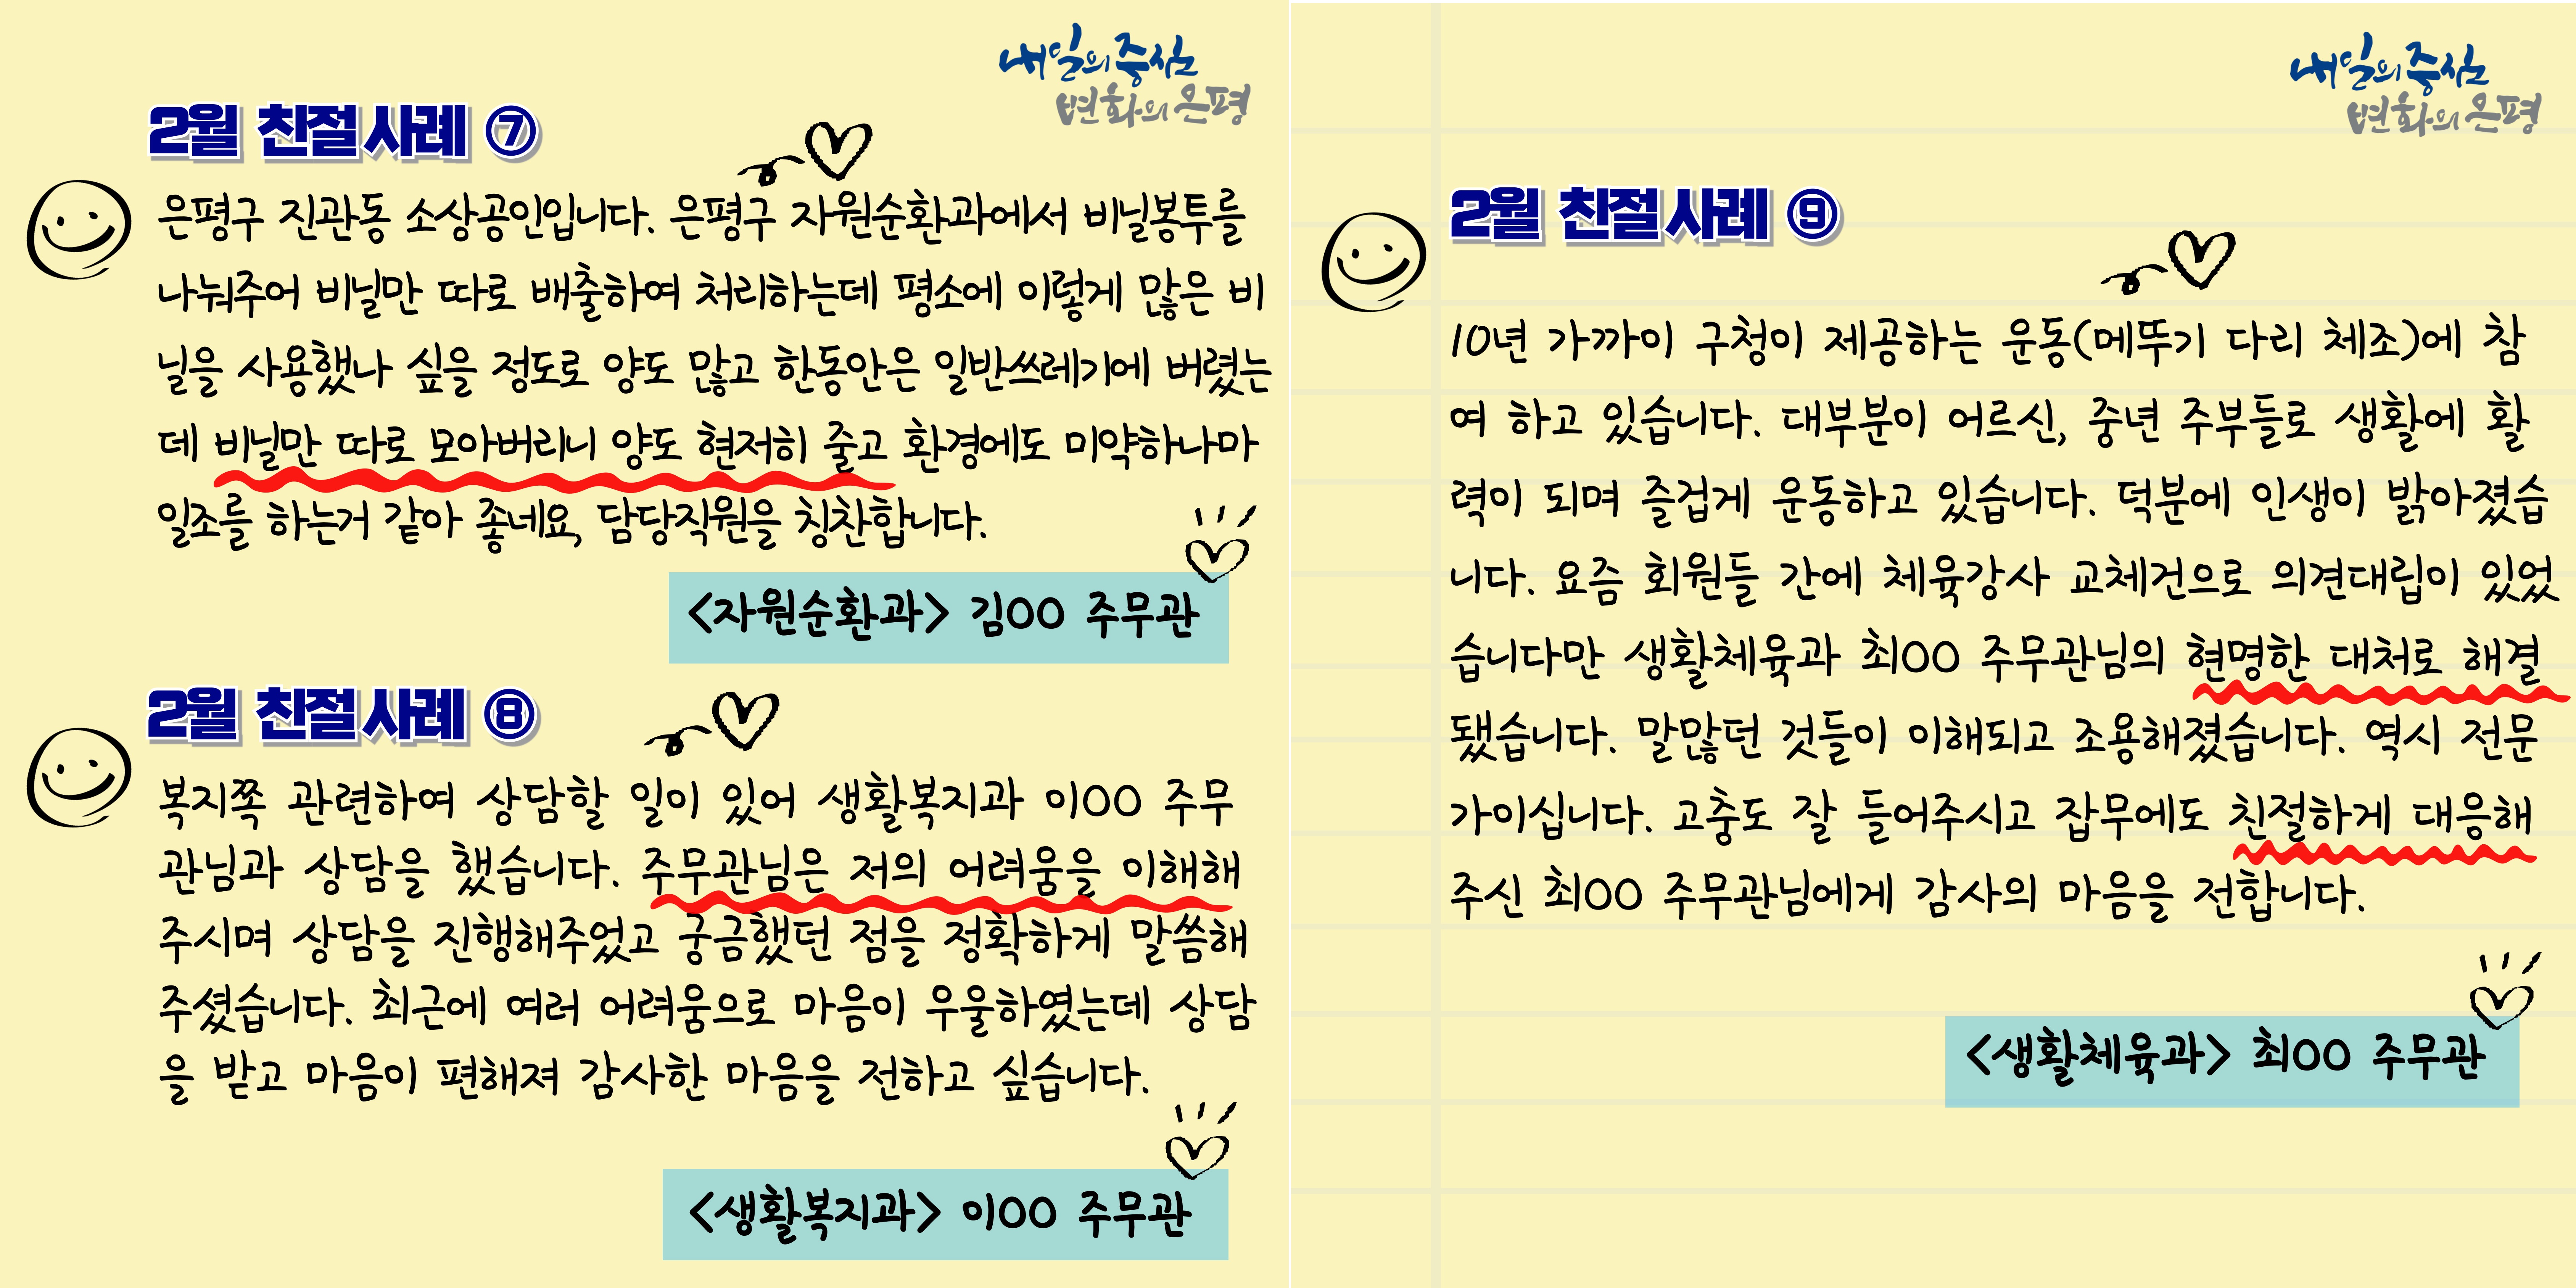 내일의 중심
변화의 은평
2월 친절사례 ⑦
은평구 진관동 소상공인입니다. 은평구 자원순환과에서 비닐봉투를
나눠주어 비닐만 따로 배출하여 처리하는데 평소에 이렇게 많은 비
닐을 사용했나 싶을 정도로 양도 많고 한동안은 일반쓰레기에 버렸는
데 비닐만 따로 모아버리니 양도 현저히 줄고 환경에도 미약하나마
일조를 하는거 같아 좋네요, 담당직원을 칭찬합니다.
<자원순환과> 김OO 주무관
2월 친절사례 ⑧
복지쪽 관련하여 상담할 일이 있어 생활복지과 이OO 주무
관님과 상담을 했습니다. 주무관님은 저의 어려움을 이해해
주시며 상담을 진행해주었고 궁금했던 점을 정확하게 말씀해
주셨습니다. 최근에 여러 어려움으로 마음이 우울하였는데 상담
을 받고 마음이 편해져 감사한 마음을 전하고 싶습니다.
<생활복지과> 이OO 주무관
내일의 중심
변화의 은평
2월 친절사례 ⑨
10년 가까이 구청이 제공하는 운동(메뚜기 다리 체조)에 참
여 하고 있습니다. 대부분이 어르신, 중년 주부들로 생활에 활
력이 되며 즐겁게 운동하고 있습니다. 덕분에 인생이 밝아졌습
니다. 요즘 회원들 간에 체육강사 교체건으로 의견대립이 있었
습니다만 생활체육과 최OO 주무관님의 현명한 대처로 해결
됐습니다. 말많던 것들이 이해되고 조용해졌습니다. 역시 전문
가이십니다. 고충도 잘 들어주시고 잡무에도 친절하게 대응해
주신 최OO 주무관님에게 감사의 마음을 전합니다.
<생활체육과> 최OO 주무관